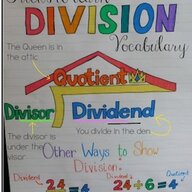 DIVISION
Vocabulary
The Queen is in
the attic
Quotient
Divisor
Dividend
The divisor is
under the
visor
You divide in the den.
Other Ways to Show
Division:
Dividend
Dividend
Quotient
24 = 4
24 ÷ 6 = 4